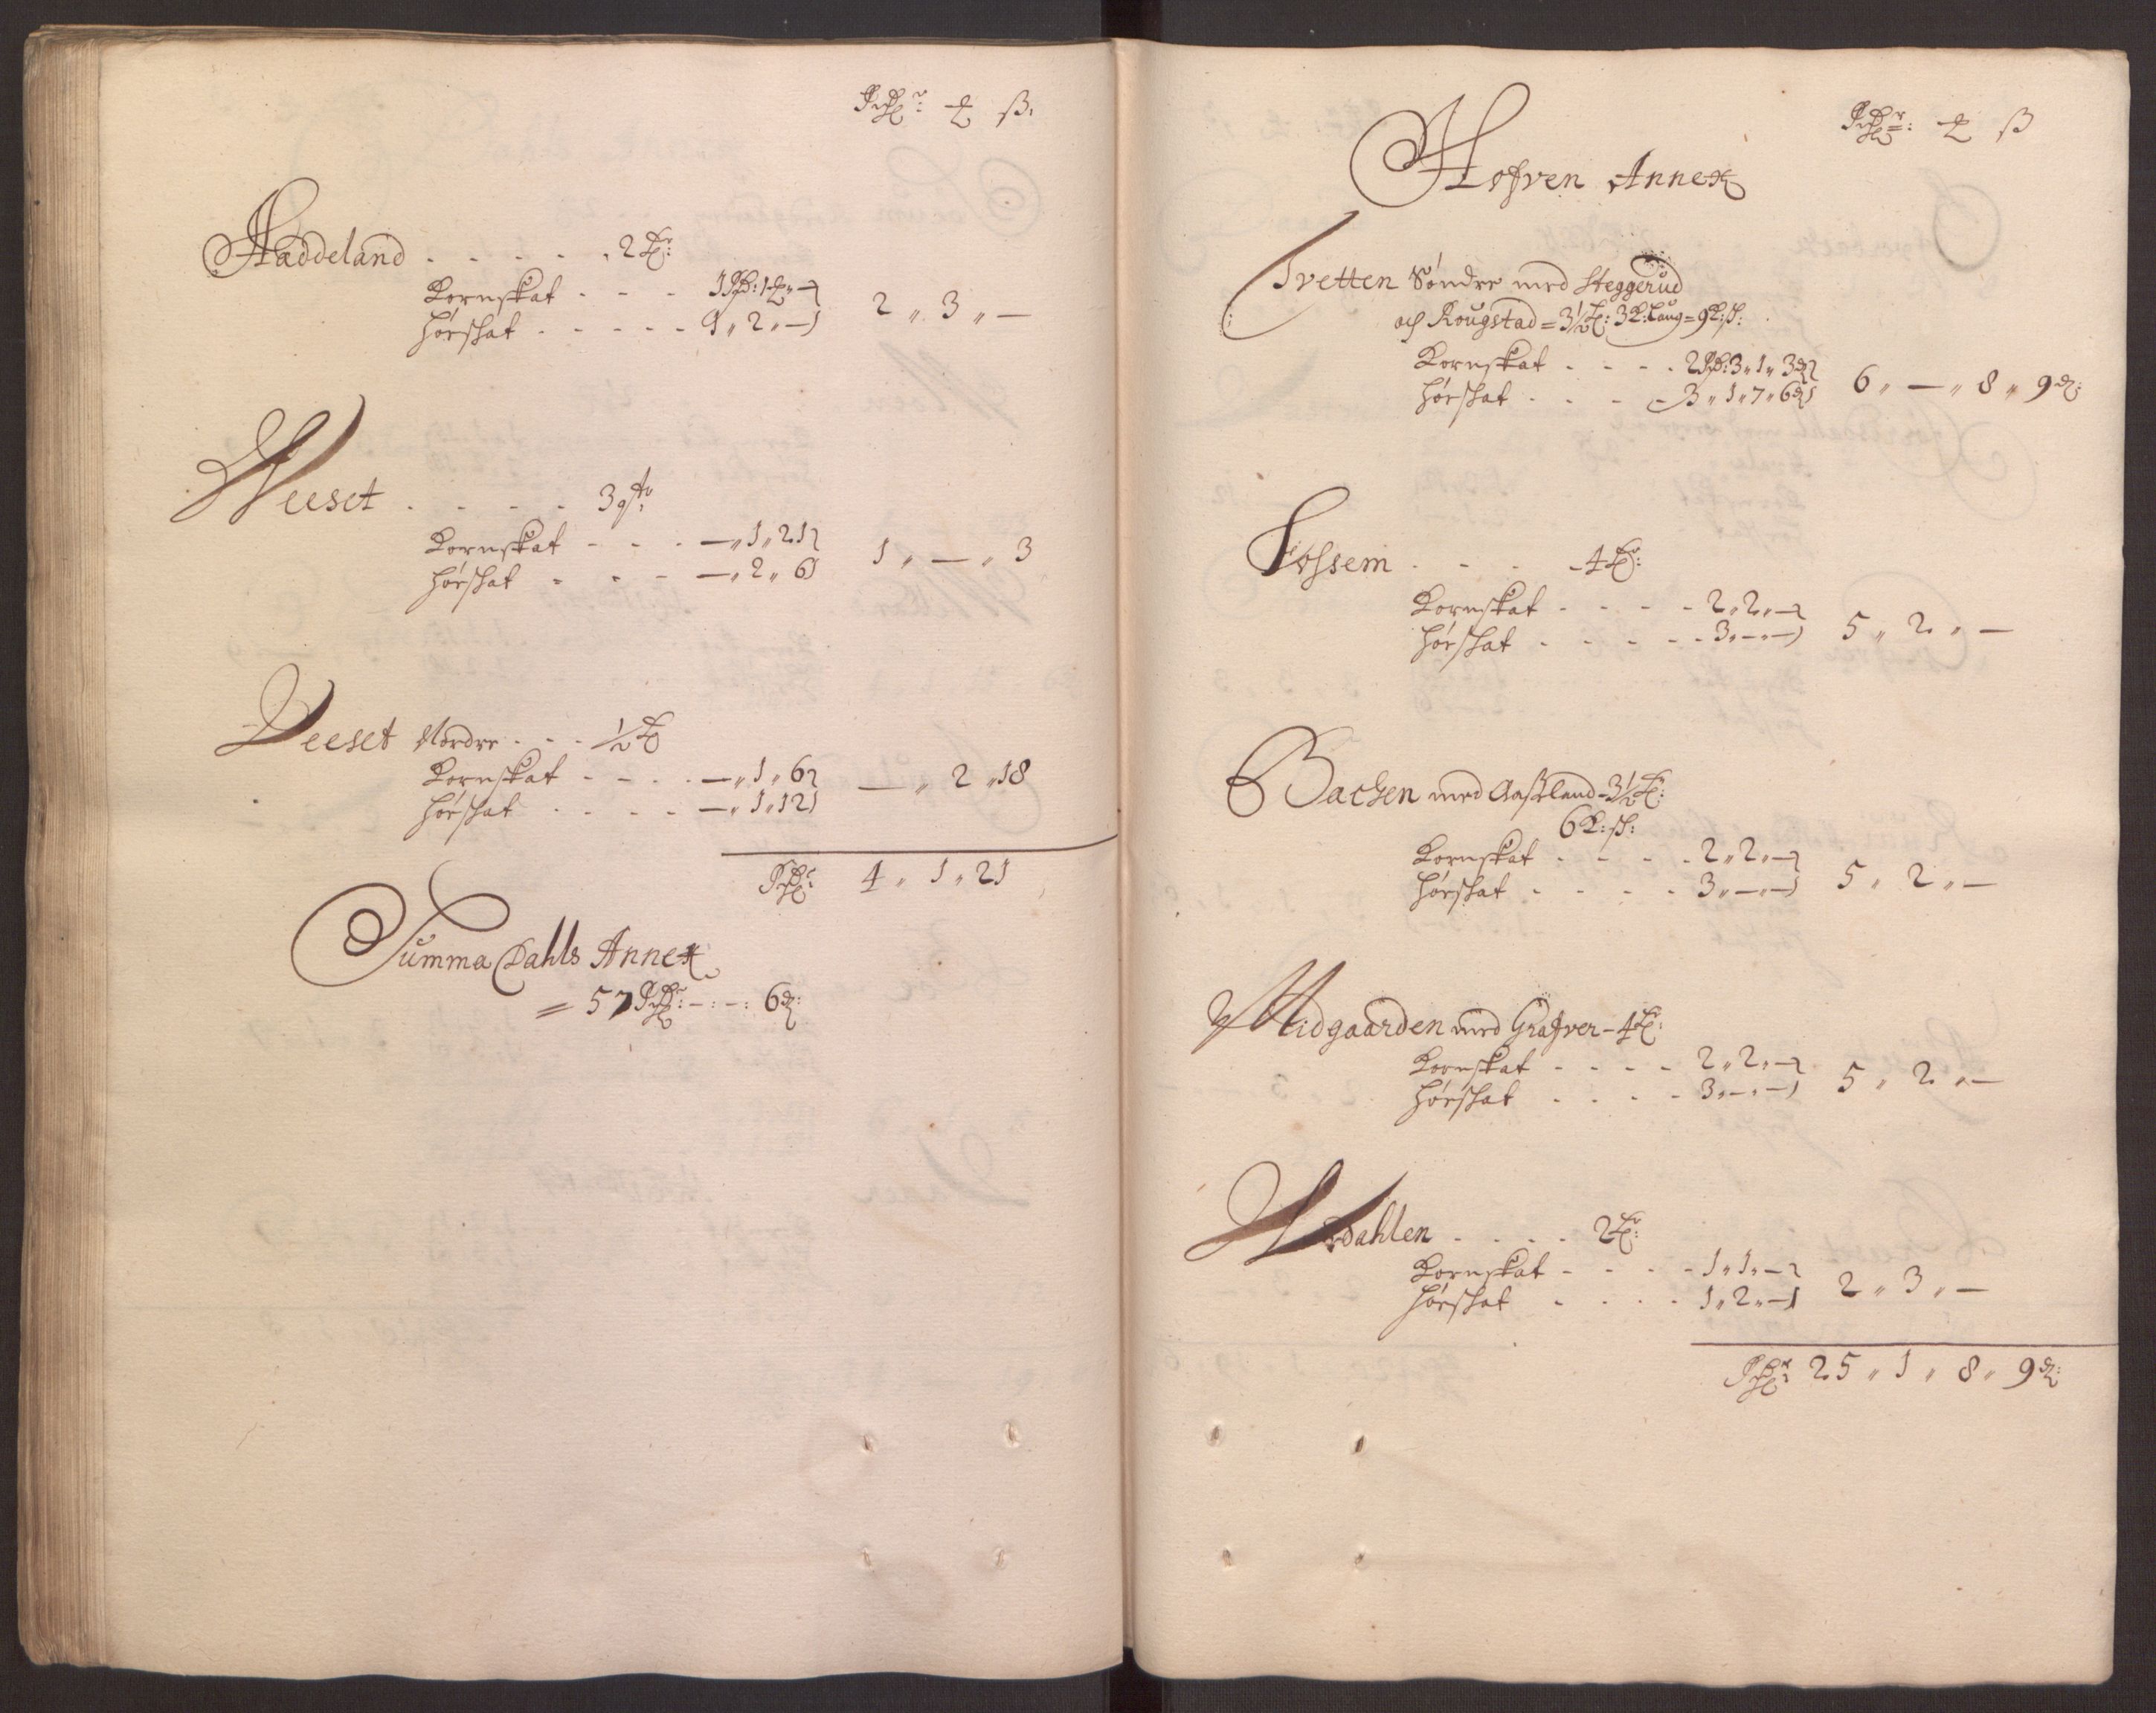 Rdr: ₰ ß.
Haddeland . . . . . 2 Tr:
Kornskat - - - 1 Rd: 1 ₰ „ —
Hørskat . . . . . 1 „ 2 „ —
2 „ 3 „ —
Weeset . . . . 3 qtr
Kornskat - - - — „ 1 „ 21
Hørskat - - - — „ 2 „ 6
1 „ — „ 3
Veeset Nordre . . . ½ T
Kornskat - - - . — „ 1 „ 6
Hørskat . . . . — „ 1 „ 12
— „ 2 „ 18
Rdr 4 „ 1 „ 21
Summa Dahls Annex
= 57 Rdr: — : — : 6 d:
Rdr: ₰ ß
Hofven Annex
Tvetten Søndre med Steggerud
och Rougstad = 3½ T: 3 K: Laug = 9 K: sk:
Kornskat . . . . 2 Rd: 3 „ 1 „ 3 d
Hørskat . . . . 3 „ 1 „ 7 „ 6 d
6 „ — „ 8 „ 9 d:
Fossem . . . - 4 Tr:
Kornskat - - - - 2 „ 2 „ —
Hørskat - - - - - 3 „ — „ —
5 „ 2 „ —
Bachen med Aasland - 3½ T:
6 K: sk:
Kornskat - - - . 2 „ 2 „ —
Hørskat - - - - 3 „ — „ —
5 „ 2 „ —
Midgaarden med Grafver - 4 T:
Kornskat - - - - 2 „ 2 „ —
Hørskat . . . - 3 „ — „ —
5 „ 2 „ —
Wrdahlen . . . . 2 Tr:
Kornskat - - - - 1 „ 1 „ —
Hørskat - . . . 1 „ 2 „ —
2 „ 3 „ —
Rdr 25 „ 1 „ 8 „ 9 d: